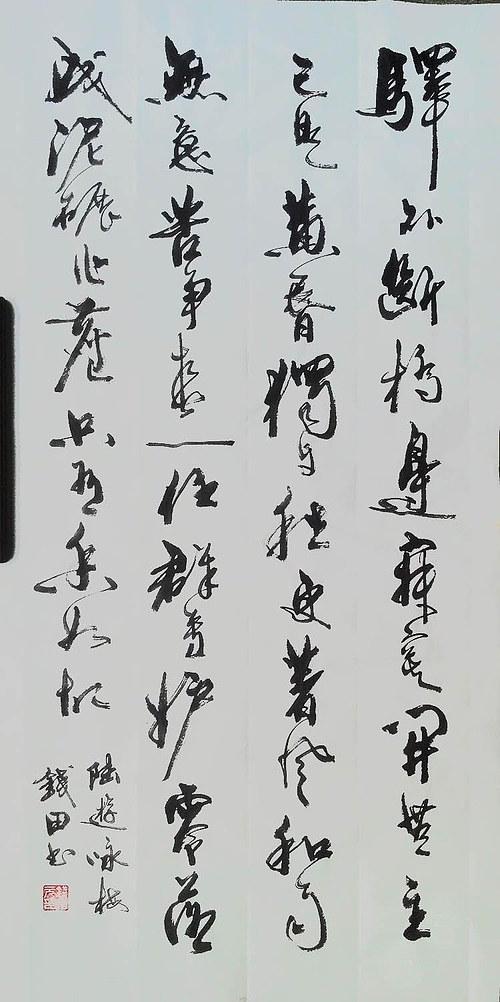 驛外斷橋邊寂寞開無主
已是黃昏獨自愁更著風和雨
無意苦爭春一任群芳妒零落
成泥碾作塵只有香如故
陸遊咏梅
錢田书